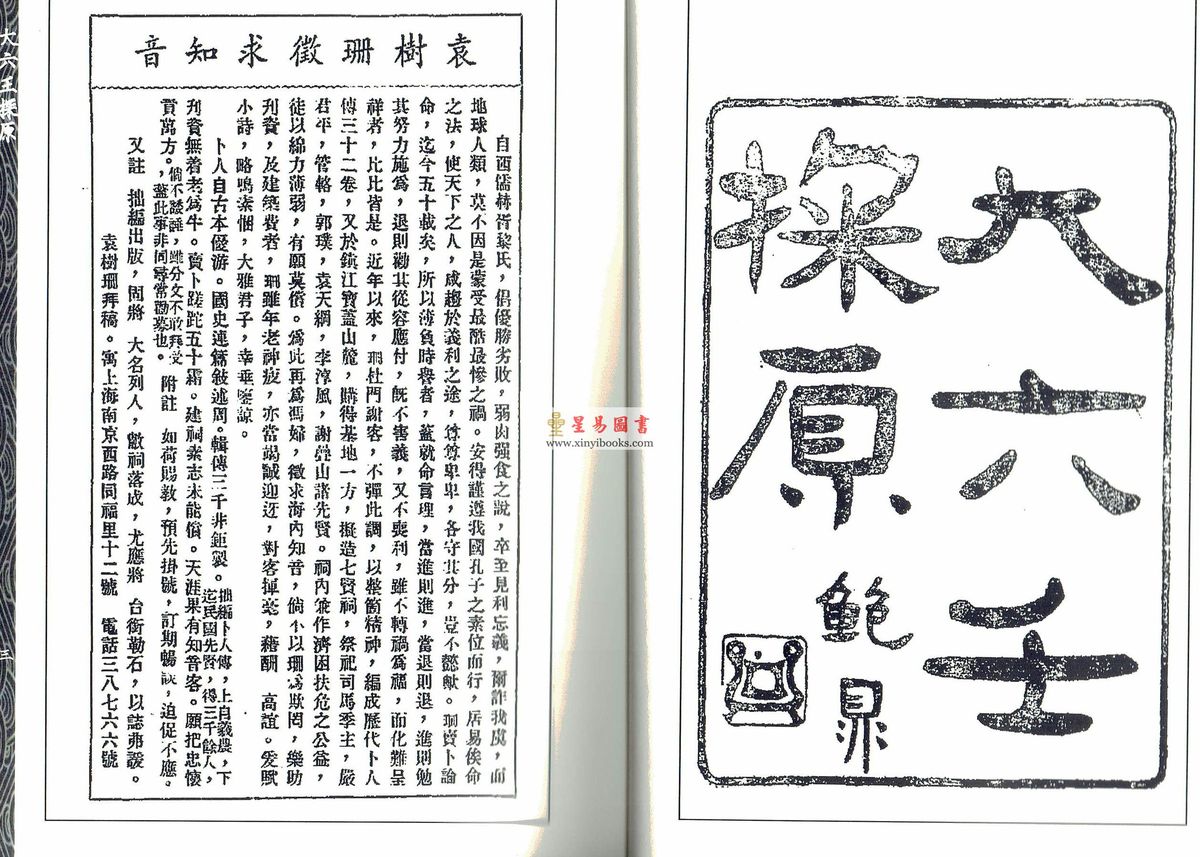 大六壬
探原
鮑鼎
袁樹珊徵求知音
自西儒赫胥黎氏，倡優勝劣敗，弱肉强食之說，卒至見利忘義，爾詐我虞，而
地球人類，莫不因是蒙受最酷最慘之禍。安得謹遵我國孔子之素位而行，居易俟命
之法，使天下之人，咸趨於義利之途，尊尊卑卑，各守其分，豈不懿歟。珊賣卜論
命，迄今五十載矣，所以薄負時譽者，蓋就命言理，當進則進，當退則退，進則勉
其努力施爲，退則勸其從容應付，旣不害義，又不喪利，雖不轉禍爲福，而化難呈
祥者，比比皆是。近年以來，珊杜門謝客，不彈此調，以整箇精神，編成歷代卜人
傳三十二卷，又於鎮江寶蓋山麓，購得基地一方，擬造七賢祠，祭祀司馬季主，嚴
君平，管輅，郭璞，袁天綱，李淳風，謝疊山諸先賢。祠內兼作濟困扶危之公益，
徒以綿力薄弱，有願莫償。爲此再爲馮婦，徵求海內知音，倘不以珊爲欺罔，樂助
刋資，及建築費者，珊雖年老神疲，亦當竭誠迎迓，對客揮毫，藉酬　高誼。爰賦
小詩，略鳴素悃，大雅君子，幸垂鑒諒。
卜人自古本優游。國史連篇敘述周。輯傳三千非鉅製。拙編卜人傳，上自羲農，下迄民國先賢，得三千餘人，
刋資無着老爲牛。賣卜蹉跎五十霜。建祠素志未能償。天涯果有知音客。願把忠懷
貢萬方。倘不諼諉，雖分文不敢拜受，蓋此事非同尋常勸募也。　附註　如荷賜敎，預先掛號，訂期暢談，迫促不應。
又註　拙編出版，固將　大名列入，獻祠落成，尤應將　台銜勒石，以誌弗諼。
袁樹珊拜稿。寓上海南京西路同福里十二號　電話三八七六六號
大六壬探原
三
星易圖書
www.xinyibooks.com